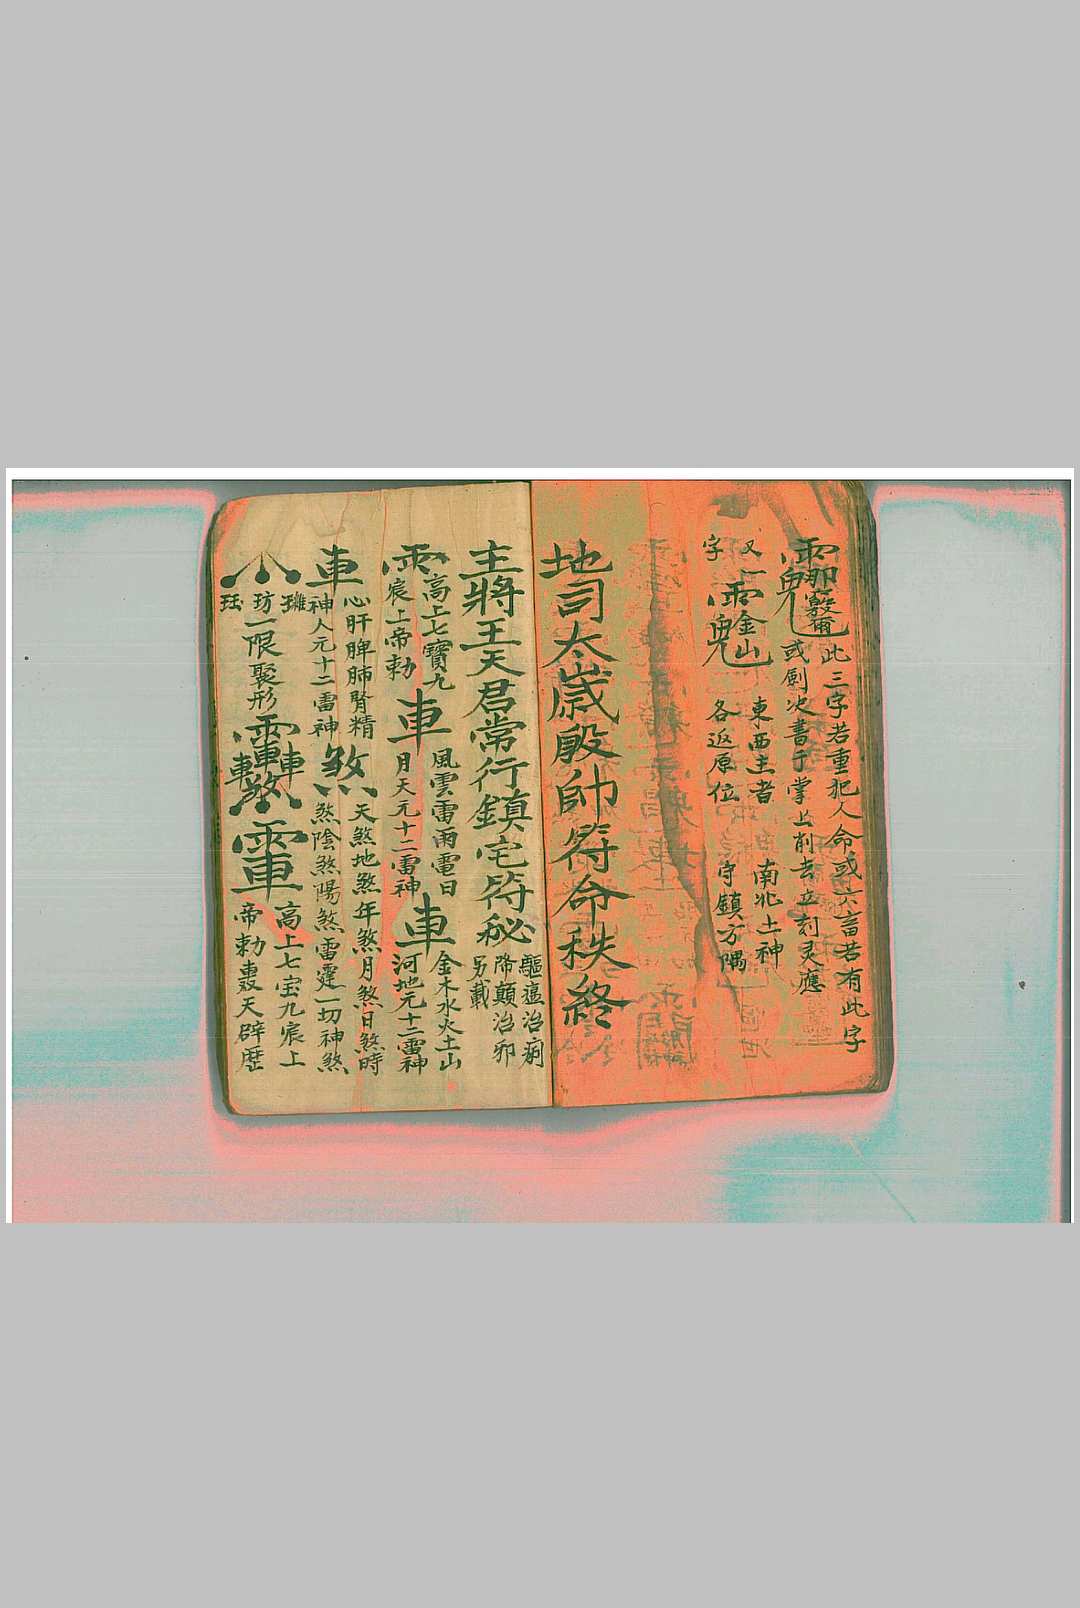 此三字若重犯人命或六畜若有此字
或劍次書于掌上削去立刻灵應
又一
字
東西主者
各返原位
南北土神
守鎮方隅
地司太歲殷帥符命秩終
主將王天君常行鎮宅符秘
驅瘟治痢
降顛治邪
另載
高上七寶九
宸上帝勅
車
風雲雷雨電日
月天元十二雷神
車
金木水火土山
河地元十二雷神
車
心肝脾肺腎精
神人元十二雷神
煞
天煞地煞年煞月煞日煞時
煞陰煞陽煞雷霆一切神煞
一限聚形
高上七宝九宸上
帝勅轟天辟歷